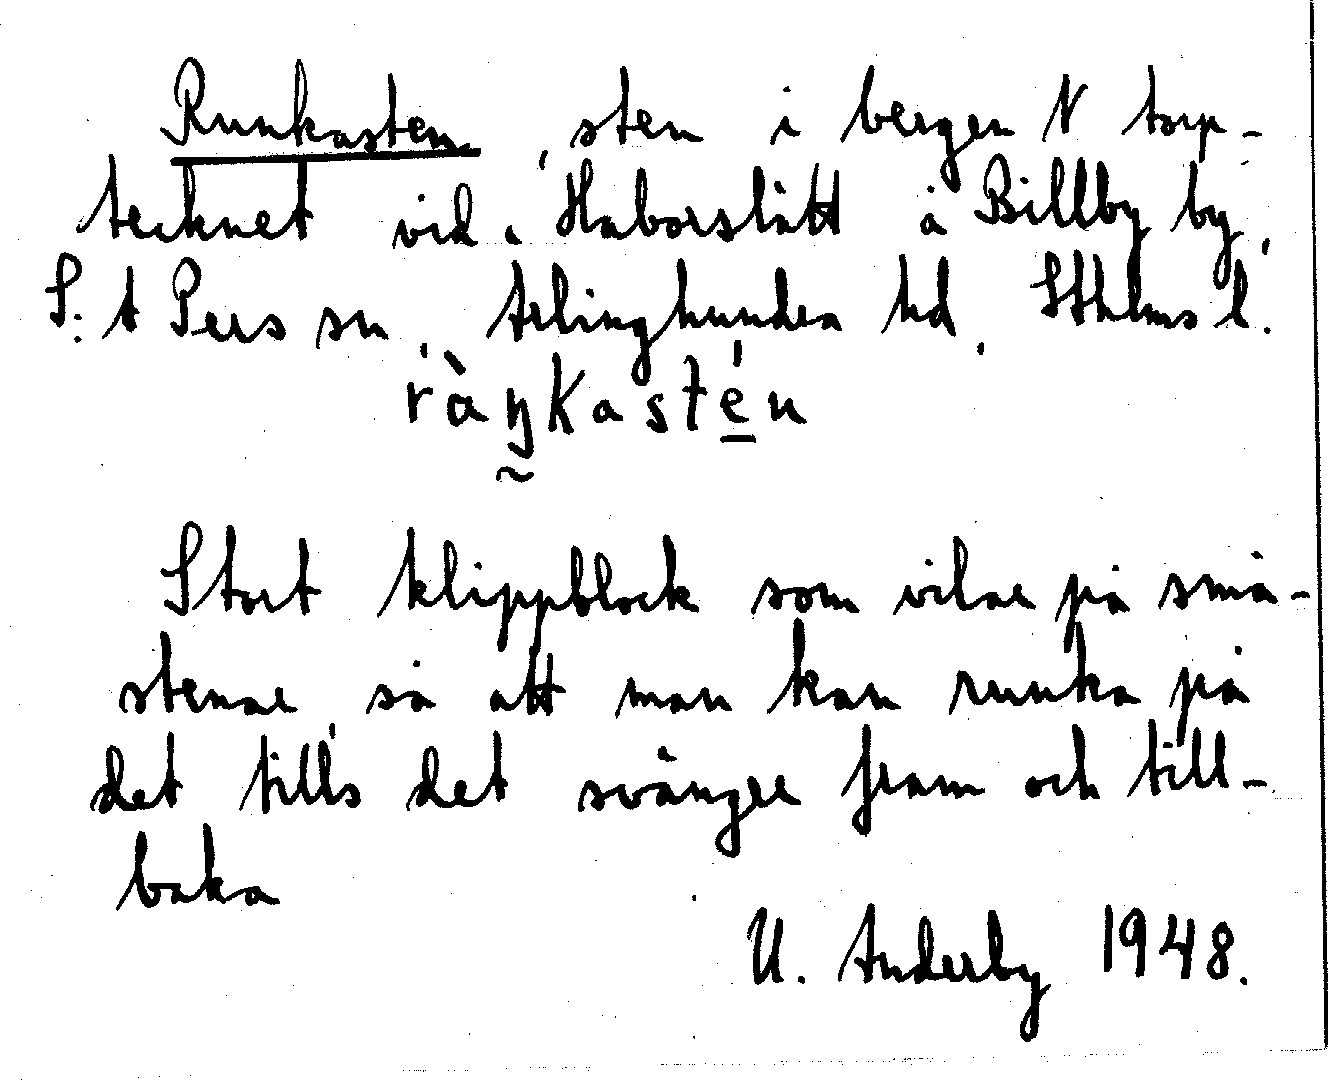 Runkasten, sten i bergen N torp-
tecknet vid Haborslått å Billby by,
S:t Pers sn, Ärlinghundra hd, Sthlms l.
ràŋkastén
Stort klippblock som vilar på små-
stenar så att man kan runka på
det tills det svänger fram och till-
baka
U. Anderby 1948.